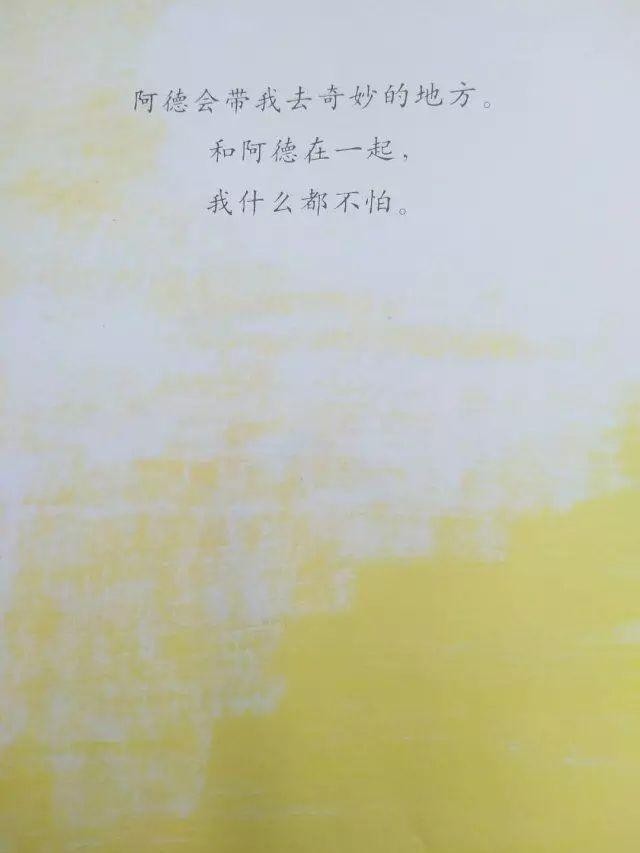 阿德会带我去奇妙的地方。
和阿德在一起，
我什么都不怕。